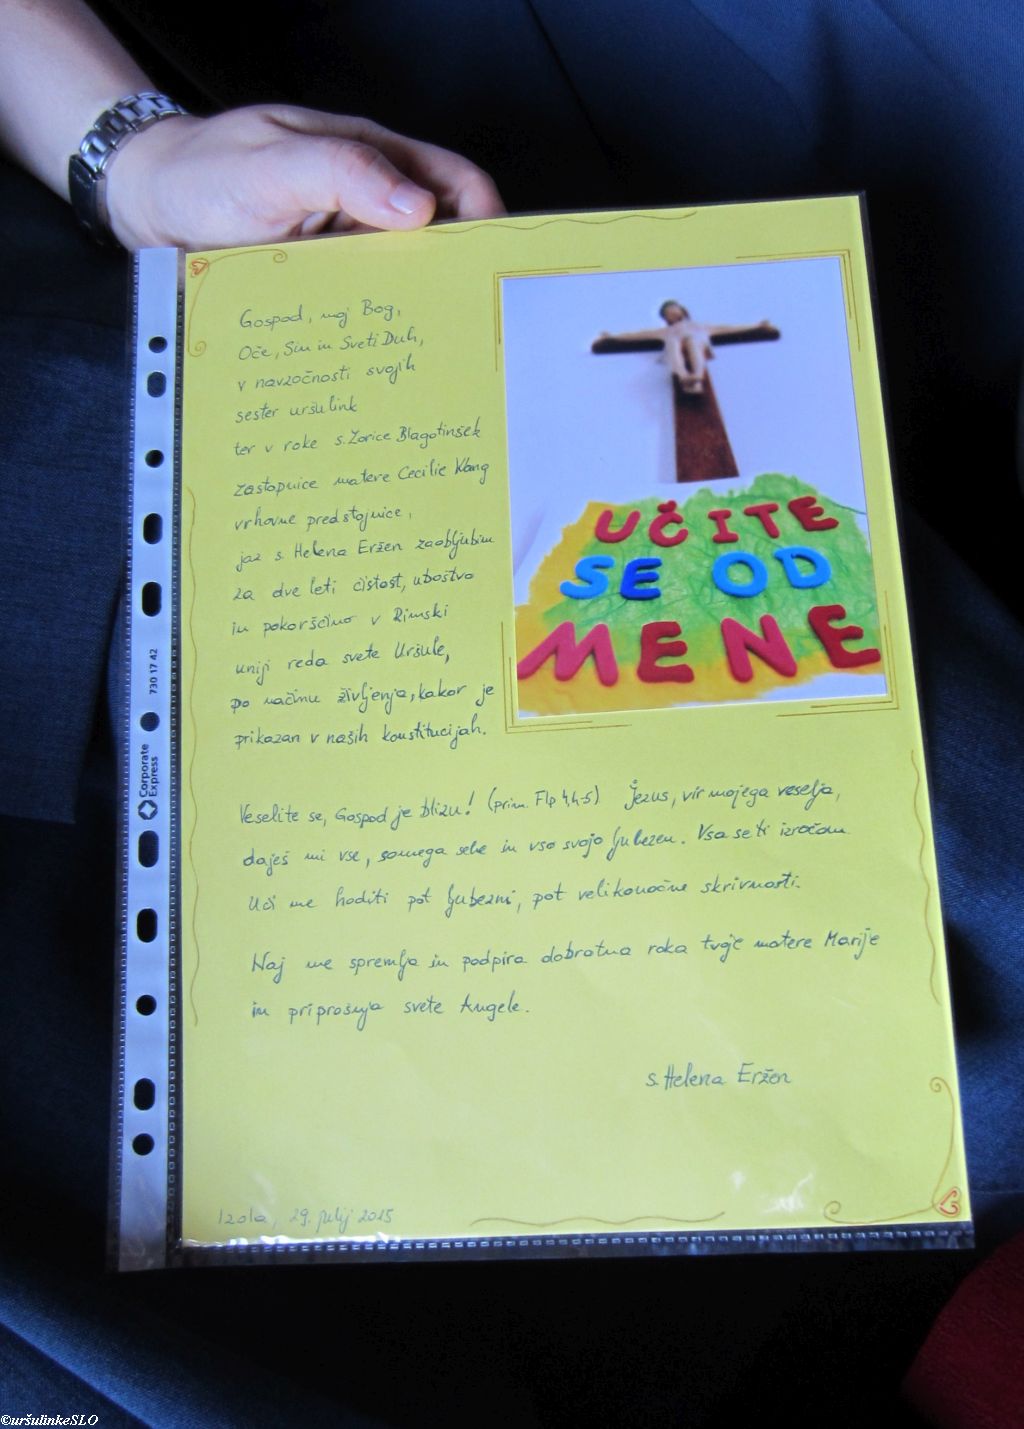 Gospod, moj Bog,
Oče, Sin in Sveti Duh,
v navzočnosti svojih
sester uršulink
ter v roke s. Zorice Blagotinšek
zastopnice matere Cecilie Wang
vrhovne predstojnice,
jaz s. Helena Eržen zaobljubim
za dve leti čistost, uboštvo
in pokorščino v Rimski
uniji reda svete Uršule,
po načinu življenja, kakor je
prikazan v naših konstitucijah.
UČITE
SE OD
MENE
Veselite se, Gospod je blizu! (prim. Flp 4,4-5) Jezus, vir mojega veselja,
daješ mi vse, samega sebe in vso svojo ljubezen. Vsa se ti izročam.
Uči me hoditi pot ljubezni, pot velikonočne skrivnosti.
Naj me spremlja in podpira dobrotna roka tvoje matere Marije
in priprošnja svete Angele.
s. Helena Eržen
Izola, 29. julij 2015
730 17 42
Corporate
Express
©uršulinkeSLO